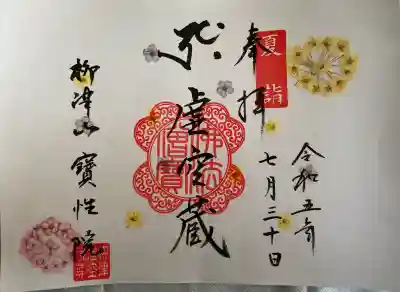 夏詣
奉拝
令和五年
七月三十日
虚空蔵
佛法僧寶
柳津山 寶性院